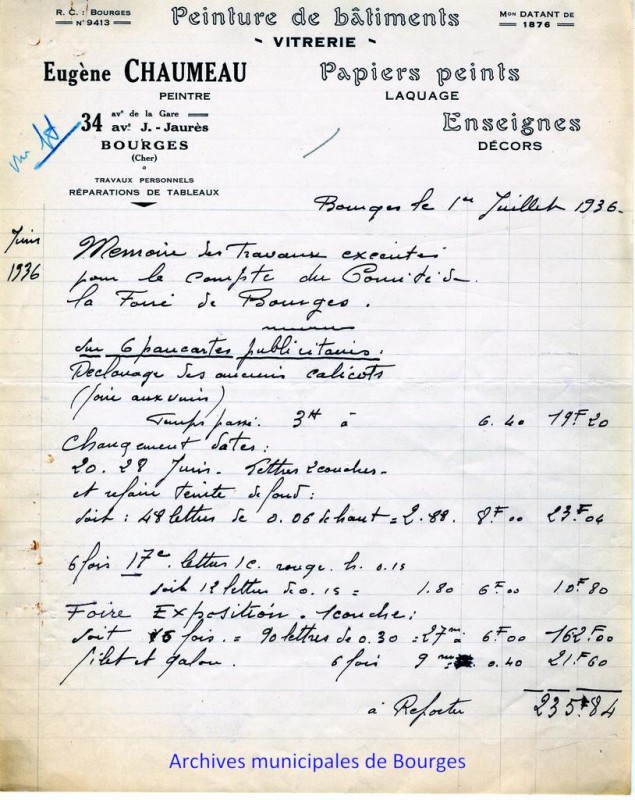 R. C. : BOURGES
N° 9413
Peinture de bâtiments
MON DATANT DE
1876
- VITRERIE -
Eugène CHAUMEAU
PEINTRE
Papiers peints
LAQUAGE
34 avᵉ de la Gare
avᵉ J.-Jaurès
BOURGES
(Cher)
Enseignes
DÉCORS
TRAVAUX PERSONNELS
RÉPARATIONS DE TABLEAUX
Bourges le 1er Juillet 1936.
Juin
1936
Memoire des travaux executés
pour le compte du Comité de
la Foire de Bourges.
sur 6 pancartes publicitaires :
Declouage des anciens calicots
(foire aux vins)
Temps passé. 3H à 6.40 19F20
Changement dates :
20. 28 Juin. lettres 2 couches.
et refaire teinte de fond :
soit : 48 lettres de 0.06 de haut = 2.88. 8F00 23F04
6 fois 17e lettres 1c. rouge. h. 0.15
soit 12 lettres de 0.15 = 1.80 6F00 10F80
Foire Exposition. 1 couche :
soit 6 fois. = 90 lettres de 0.30 = 27m 6F00 162F00
filet et galon. 6 fois 9m 0.40 21F60
à Reporter 235F84
Archives municipales de Bourges